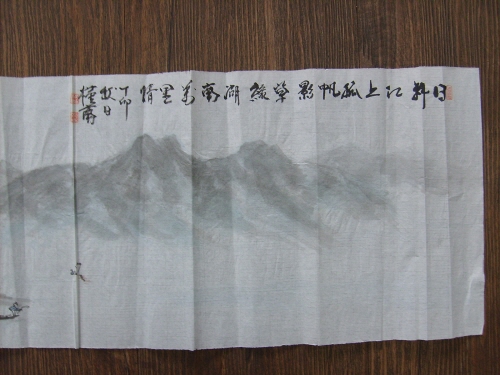 日斜江上孤帆影草綠湖南萬里情
丁卯
秋日